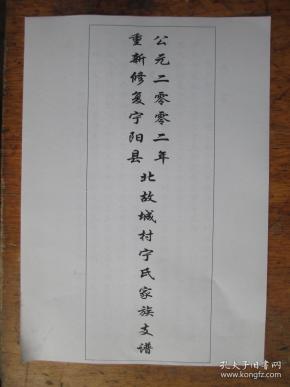 公元二零零二年
重新修复宁阳县
北故城村宁氏家族支谱
孔夫子旧书网
kongfz.com